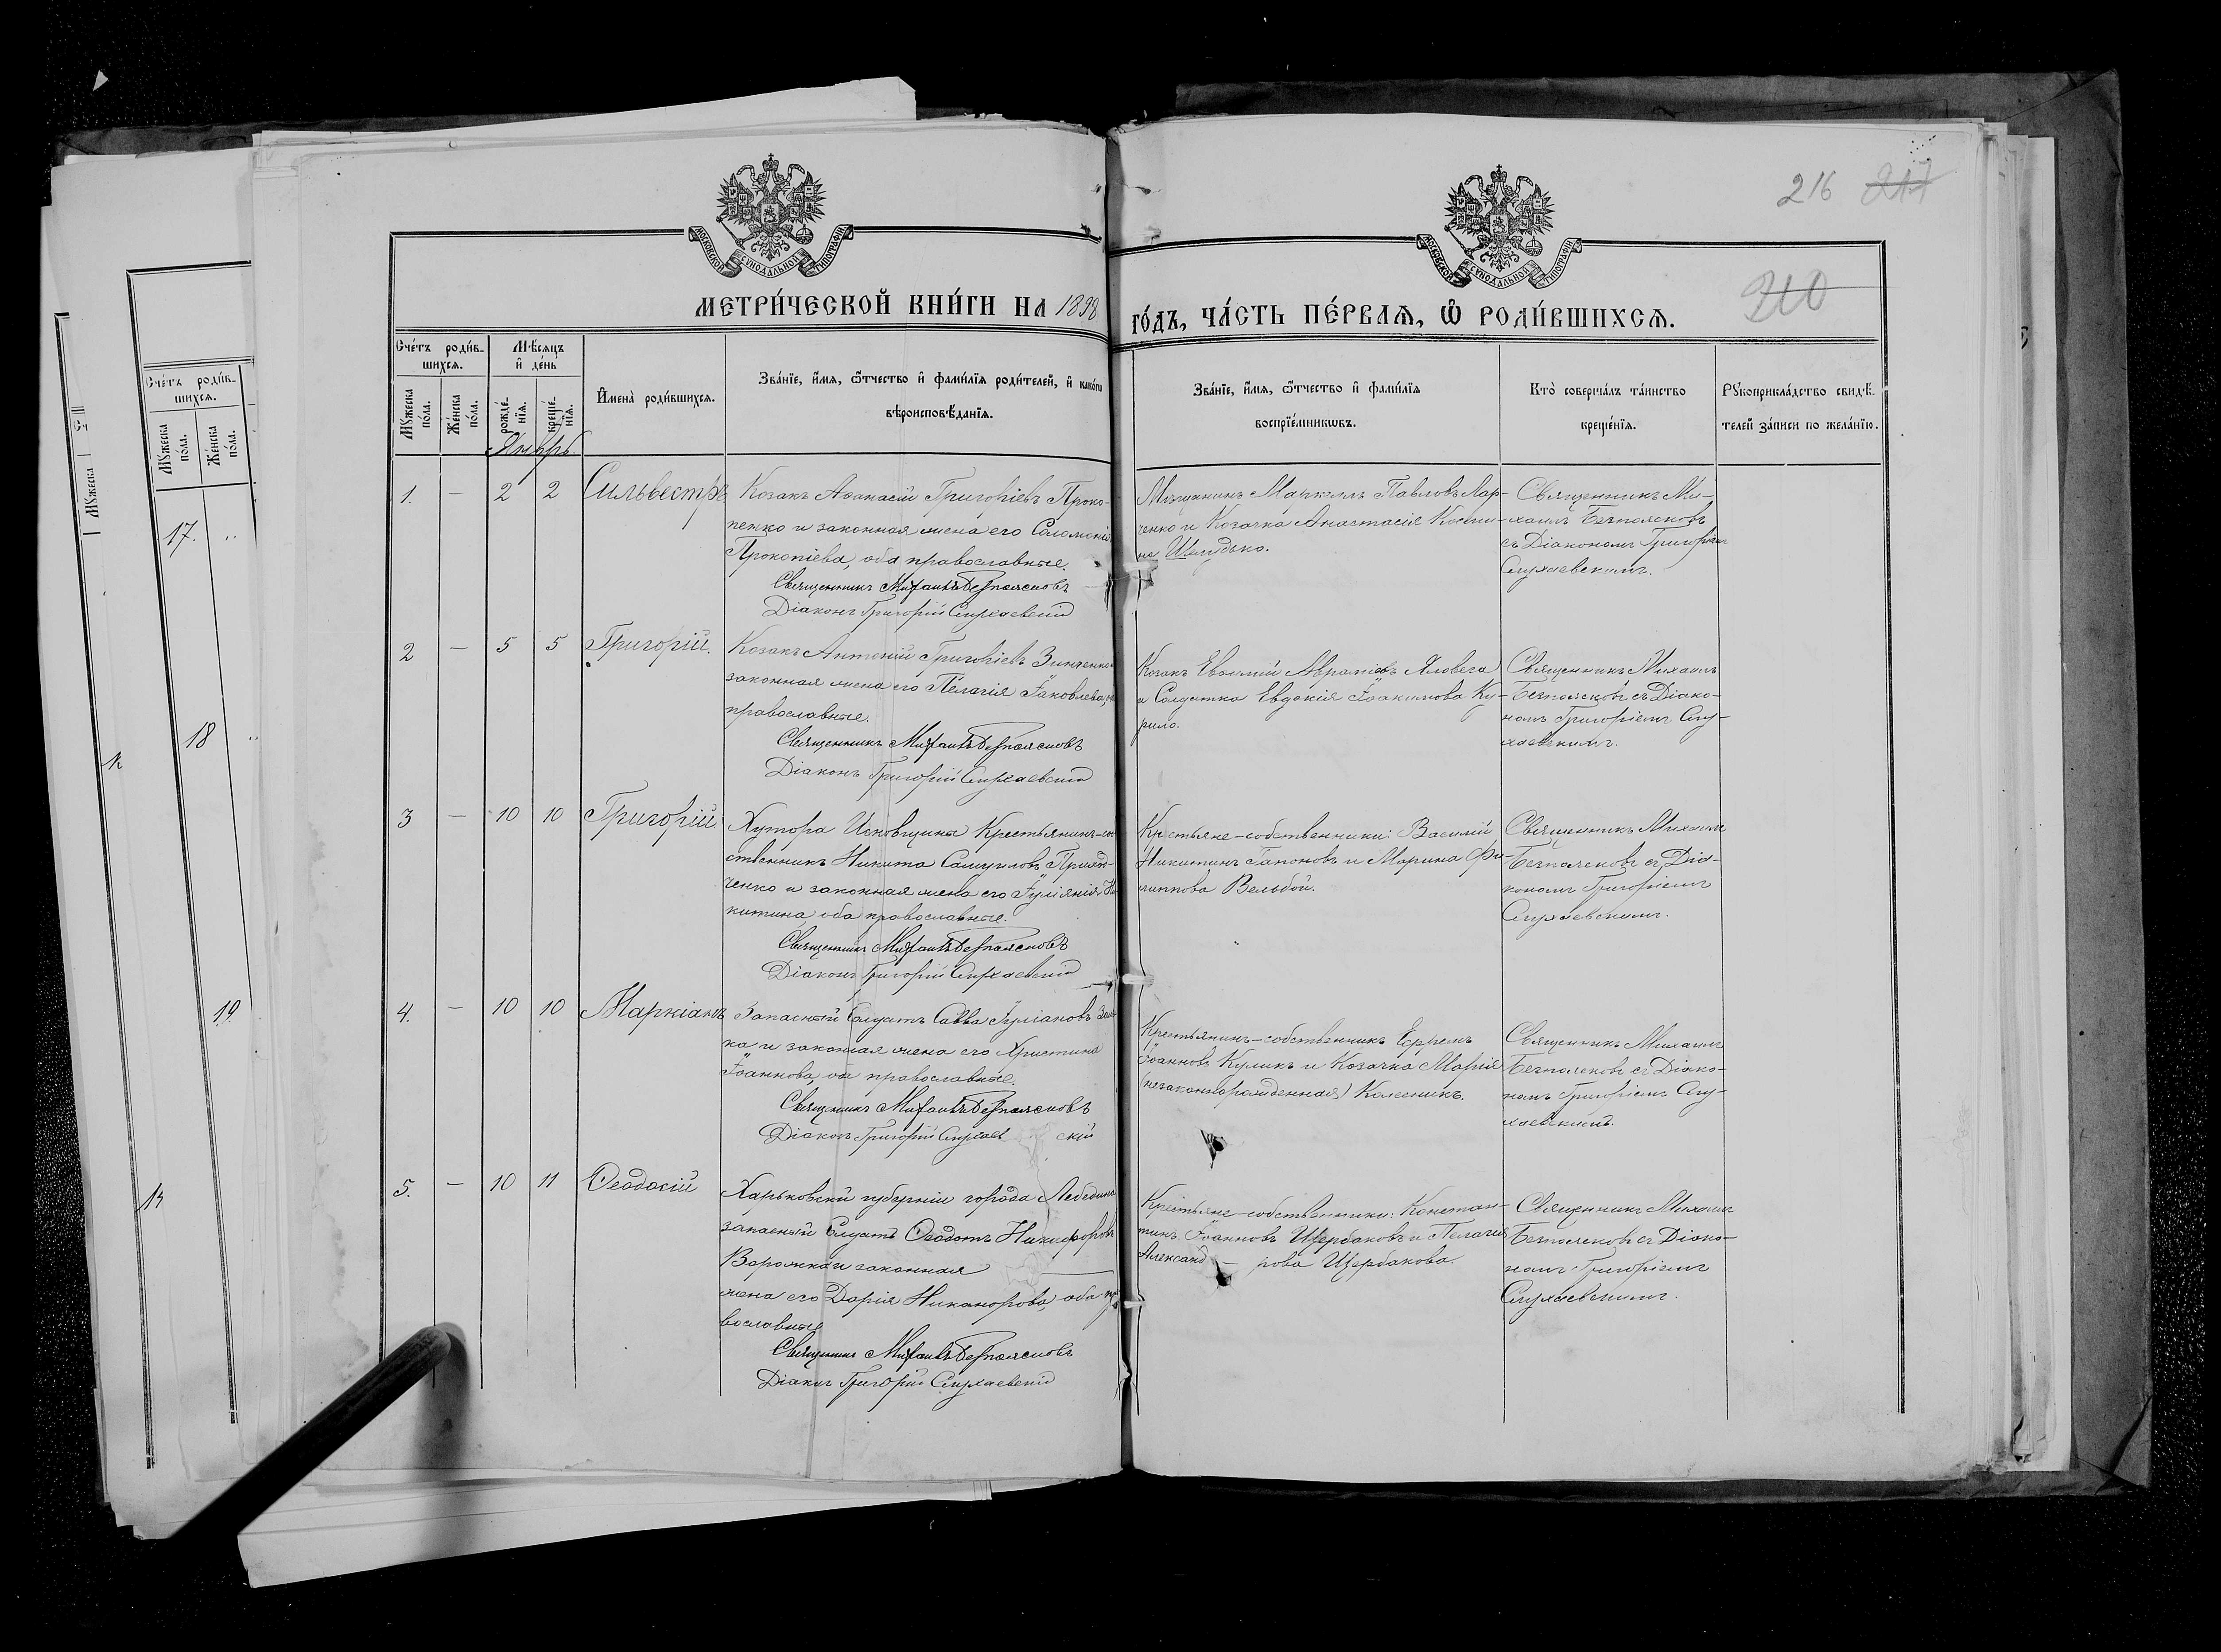 216 217
210
МОСКОВСКОЙ СѴНОДАЛЬНОЙ ТИПОГРАФІИ
МОСКОВСКОЙ СѴНОДАЛЬНОЙ ТИПОГРАФІИ
МЕТРИ́ЧЕСКОЙ КНИ́ГИ НА 1898
ГО́ДЪ, ЧА́СТЬ ПЕ́РВАѦ, Ѡ РОДИ́ВШИХСѦ.
Счéтъ роди́в-
шихсѧ.
Мѣ́сѧцъ
и҆ де́нь
Мꙋ́жеска
по́ла.
Же́нска
по́ла.
рожде́-
нїѧ.
креще́-
нїѧ.
И҆мена̀ роди́вшихсѧ.
Зва́нїе, и҆́мѧ, ѻ҆́тчество и҆ фами́лїѧ роди́телей, и҆ како́гѡ
вѣроисповѣ́данїѧ.
Зва́нїе, и҆́мѧ, ѻ҆́тчество и҆ фами́лїѧ
воспрїе́мникѡвъ.
Кто̀ соверша́лъ та́инство
креще́нїѧ.
Рꙋкоприкла́дство свидѣ́-
телей за́писи по жела́нїю.
Январь
1. — 2 2 Сильвестръ
Козакъ Аѳанасій Григоріевъ Проко-
пенко и законная жена его Саломонія
Прокопіева, оба православные.
Священникъ Михаилъ Безпоясновъ
Діаконъ Григорій Слухаевскій
Мѣщанинъ Маркеллъ Павловъ Мар-
ченко и Козачка Анастасія Косми-
на
Священникъ Ми-
хаилъ Безпоясновъ
съ Діакономъ Григоріемъ
Слухаевскимъ.
2 — 5 5 Григорій.
Козакъ Антоній Григоріевъ Зинченко
законная жена его Пелагія Іаковлева,
православные.
Священникъ Михаилъ Безпоясновъ
Діаконъ Григорій Слухаевскій
Козакъ Евѳимій Яловега
и Солдатка Евдокія Іоакимова Ку-
рило.
Священникъ Михаилъ
Безпоясновъ съ Діако-
номъ Григоріемъ Слу-
хаевскимъ.
3 — 10 10 Григорій
Хутора Исковщины Крестьянинъ-соб
ственникъ Никита Самуиловъ Приход-
ченко и законная жена его Іуліанія Ни
китина, оба православные.
Священникъ Михаилъ Безпоясновъ
Діаконъ Григорій Слухаевскій
Крестьяне-собственники: Василій
Никитинъ Гапоновъ и Марина Фи-
липпова Вельбой.
Священникъ Михаилъ
Безпоясновъ съ Діа-
кономъ Григоріемъ
Слухаевскимъ.
4. — 10 10 Маркіанъ
Запасный Солдатъ Савва Іуліановъ
ка и законная жена его Христина
Іоаннова, оба православные.
Священникъ Михаилъ Безпоясновъ
Діаконъ Григорій Слухаев скій
Крестьянинъ-собственникъ Ефремъ
Іоанновъ Куликъ и Козачка Марія
(незаконнорожденная) Колесникъ.
Священникъ Михаилъ
Безпоясновъ съ Діако-
номъ Григоріемъ Слу-
хаевскимъ.
5. — 10 11 Ѳеодосій
Харьковской губерніи города Лебедина
запасный Солдатъ Ѳеодотъ Никифоровъ
Ворожка и законная
жена его Дарія Никанорова, оба пра
вославные
Священникъ Михаилъ Безпоясновъ
Діаконъ Григорій Слухаевскій
Крестьяне-собственники: Констан-
тинъ Іоанновъ Щербаковъ и Пелагія
Александ — рова Щербакова.
Священникъ Михаилъ
Безпоясновъ съ Діако-
номъ Григоріемъ
Слухаевскимъ.
Счéтъ роди́в-
шихсѧ.
Мꙋ́жеска
по́ла.
Же́нска
по́ла.
Мꙋ́жеска
17.
18
19
14